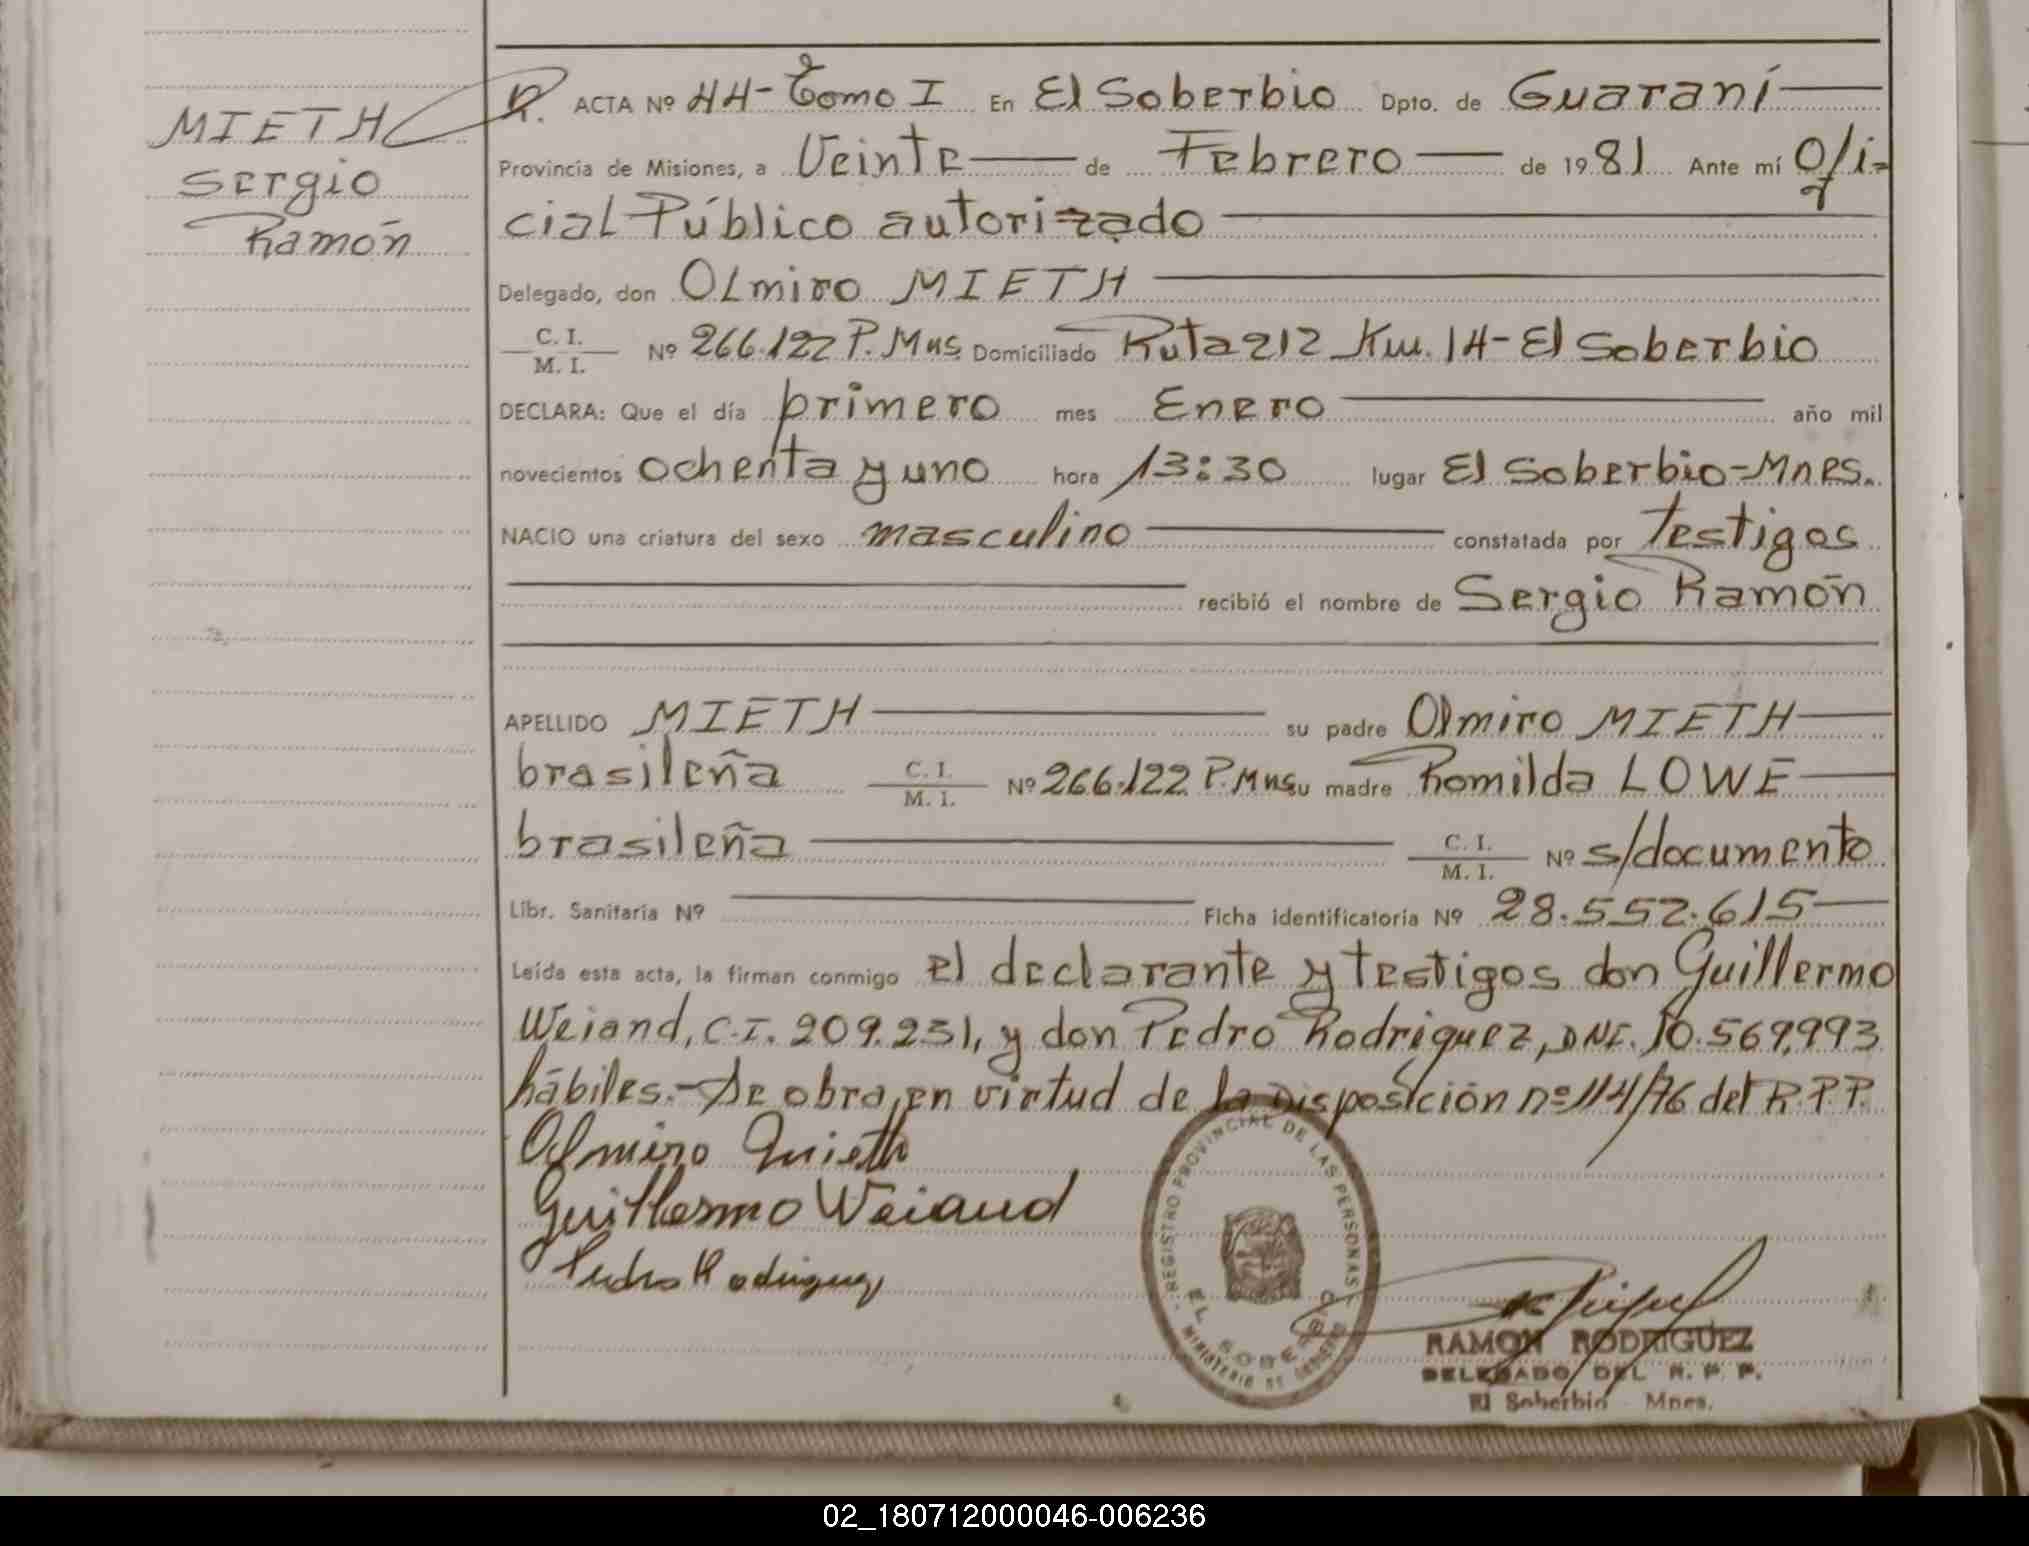 MIETH
Sergio
Ramón
R. ACTA Nº 44-Tomo I En El Soberbio Dpto. de Guaraní
Provincia de Misiones, a Veinte de Febrero de 1981 Ante mí Ofi-
cial Público autorizado
Delegado, don Olmiro MIETH
C. I.
M. I. Nº 266.122 P. Mns Domiciliado Ruta 212 Km. 14- El Soberbio
DECLARA: Que el día primero mes Enero año mil
novecientos ochenta y uno hora 13:30 lugar El Soberbio-Mnes.
NACIO una criatura del sexo masculino constatada por testigos
recibió el nombre de Sergio Ramón
APELLIDO MIETH su padre Olmiro MIETH
brasileña C. I. M. I. Nº 266.122 P. Mns su madre Romilda LOWE
brasileña C. I. M. I. Nº s/documento
Libr. Sanitaria Nº Ficha identificatoria Nº 28.552.615
Leída esta acta, la firman conmigo el declarante y testigos don Guillermo
Weiand, C.I. 209.231, y don Pedro Rodriguez, DNI. 10.569.993
hábiles.- De obra, en virtud de la Disposición nº 114/76 del R.P.P.
Olmiro Mieth
Guillermo Weiand
Pedro Rodriguez
REGISTRO PROVINCIAL DE LAS PERSONAS
EL SOBERBIO
MINISTERIO DE GOBIERNO
RAMON RODRIGUEZ
DELEGADO DEL R. P. P.
El Soberbio - Mnes.
02_180712000046-006236